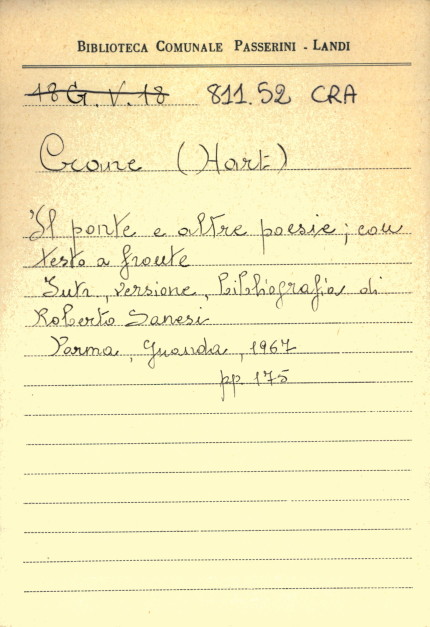 BIBLIOTECA COMUNALE PASSERINI - LANDI
18 G. V. 18 811.52 CRA
Crane (Hart)
Il ponte e altre poesie; con
testo a fronte
Intr, versione, bibliografia di
Roberto Sanesi
Parma, Guanda, 1967
pp. 175